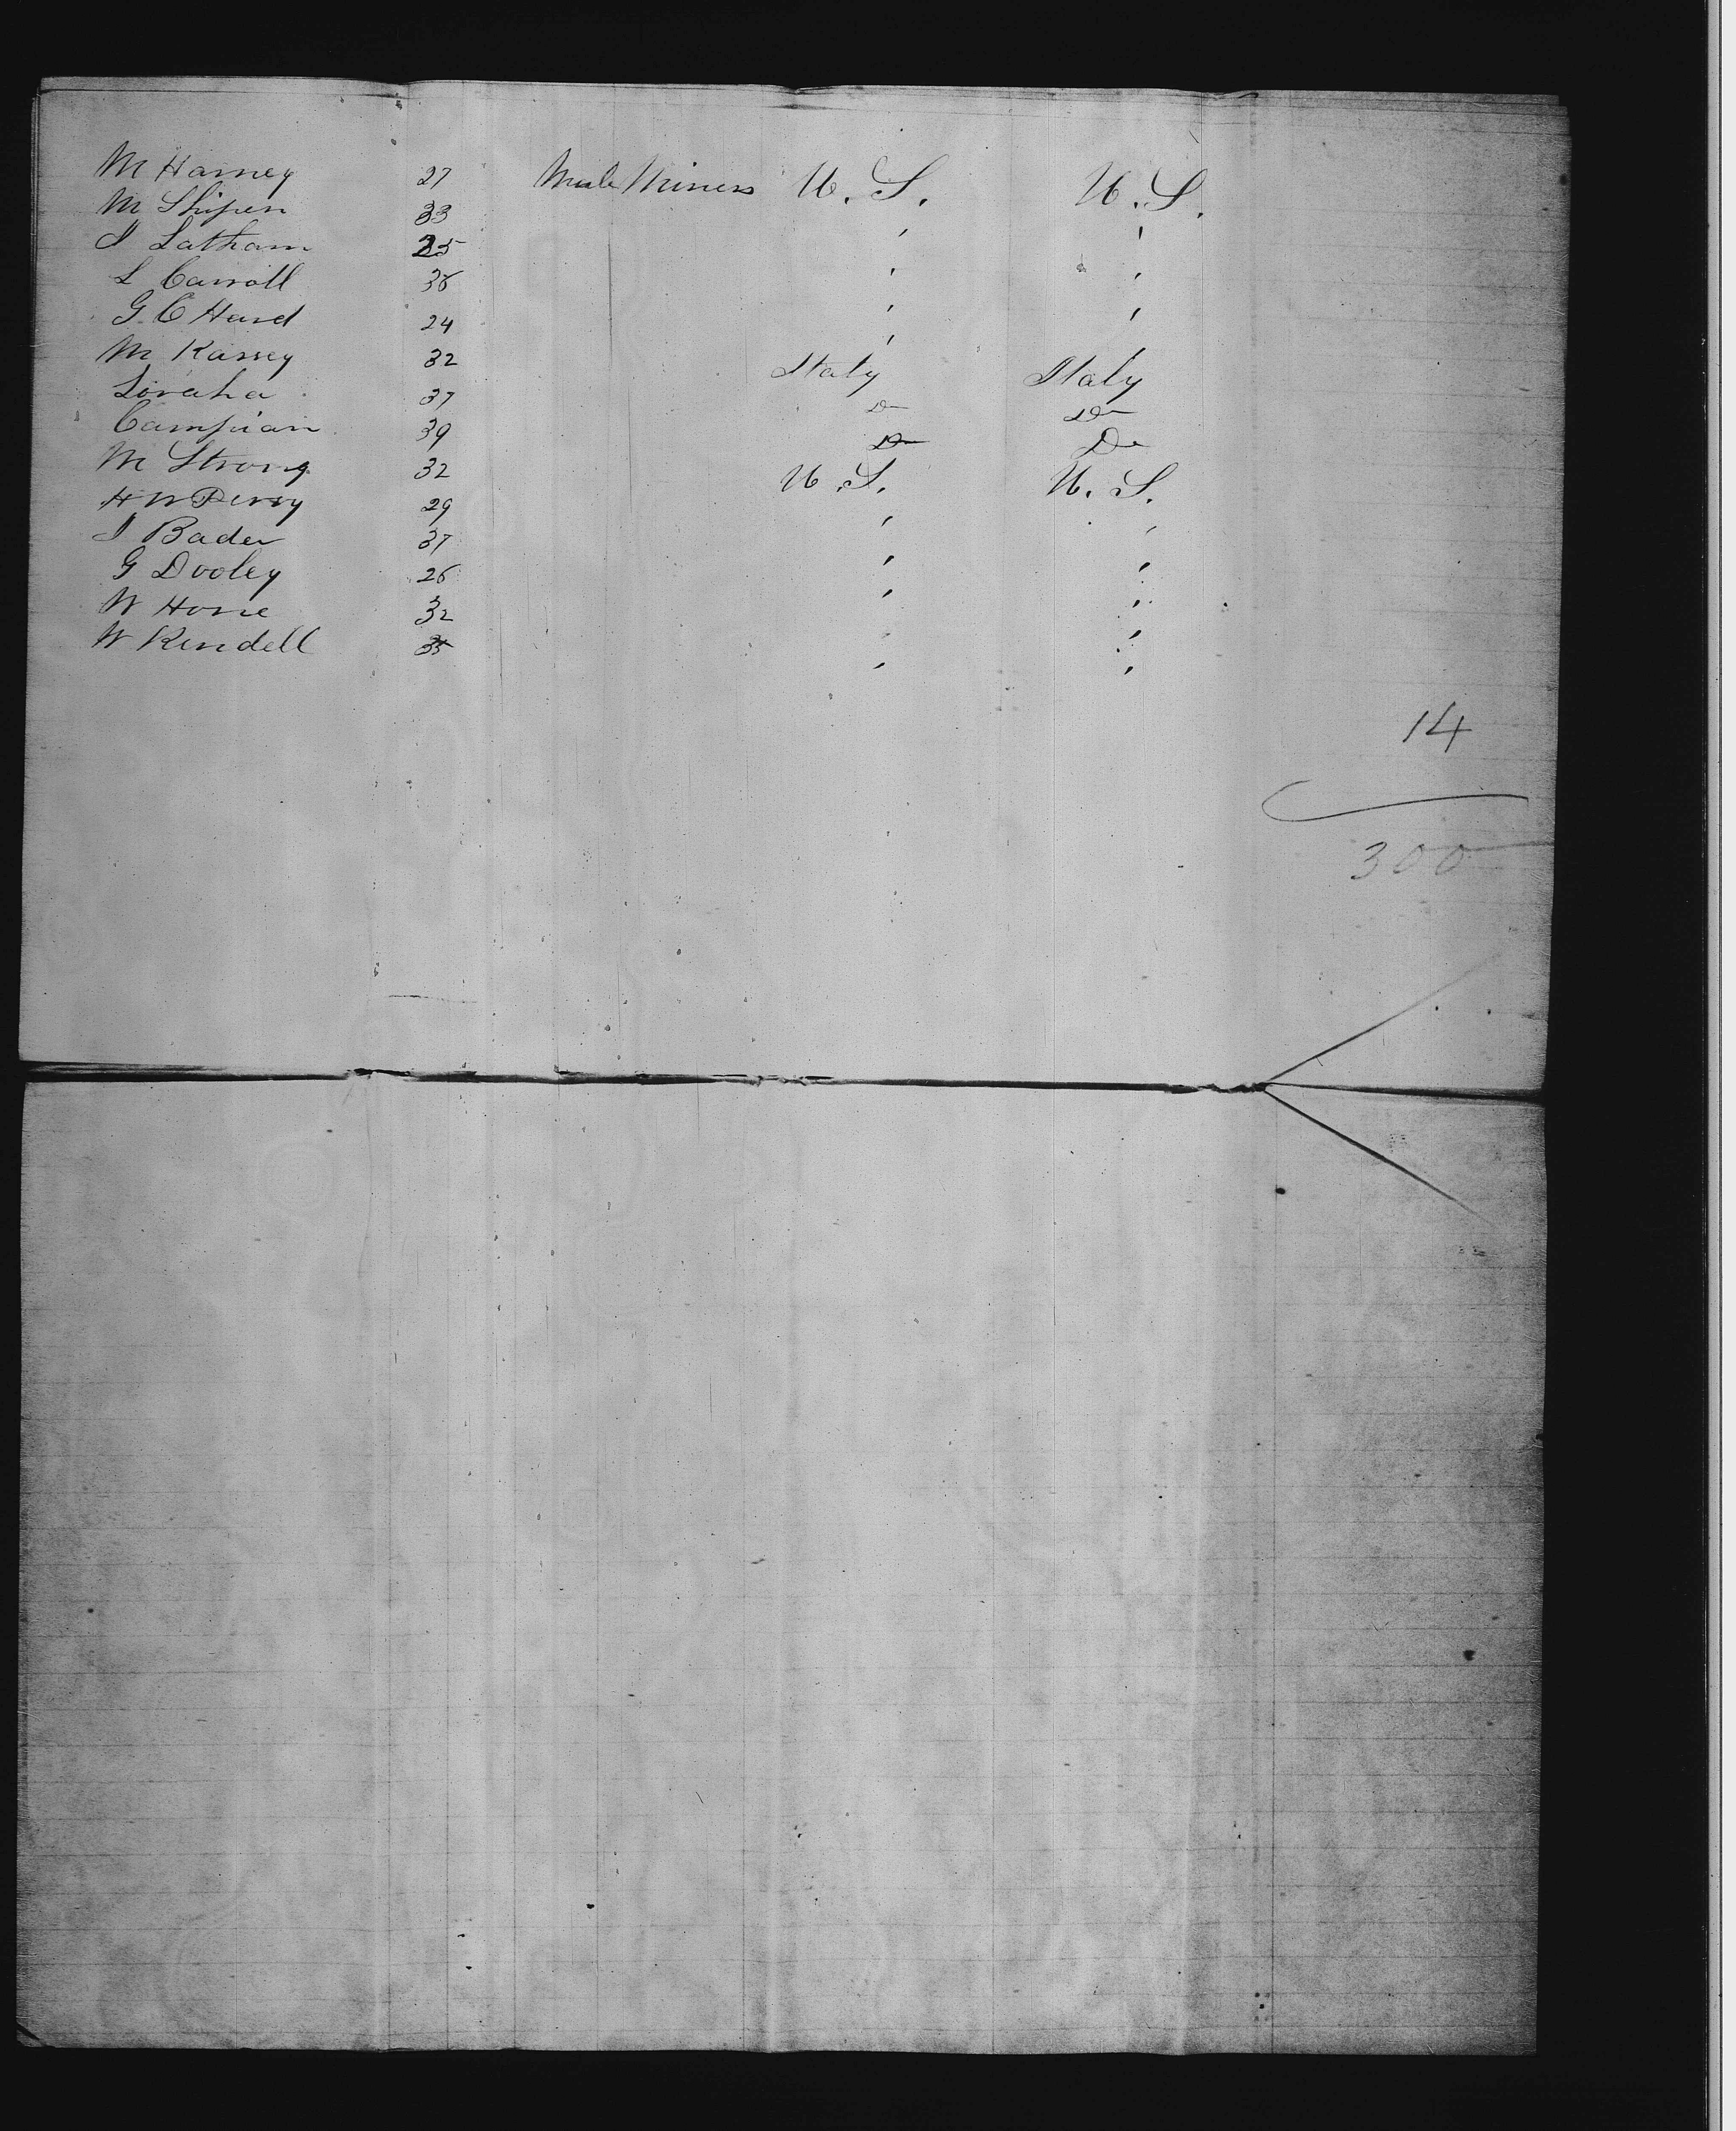 M Harney 27 Male Miners U. S. U. S.
M Shipen 33 " "
J Latham 25 " "
L Carroll 36 " "
G. C Hard 24 " "
M Karsey 32 Italy Italy
Loraha 37 Do Do
Campian 39 Do Do
M Strong 32 U. S. U. S.
H W Perry 29 " "
J Bader 37 " "
G Dooley 26 " "
W Horne 32 "
W Rendell 35 " "
14
300